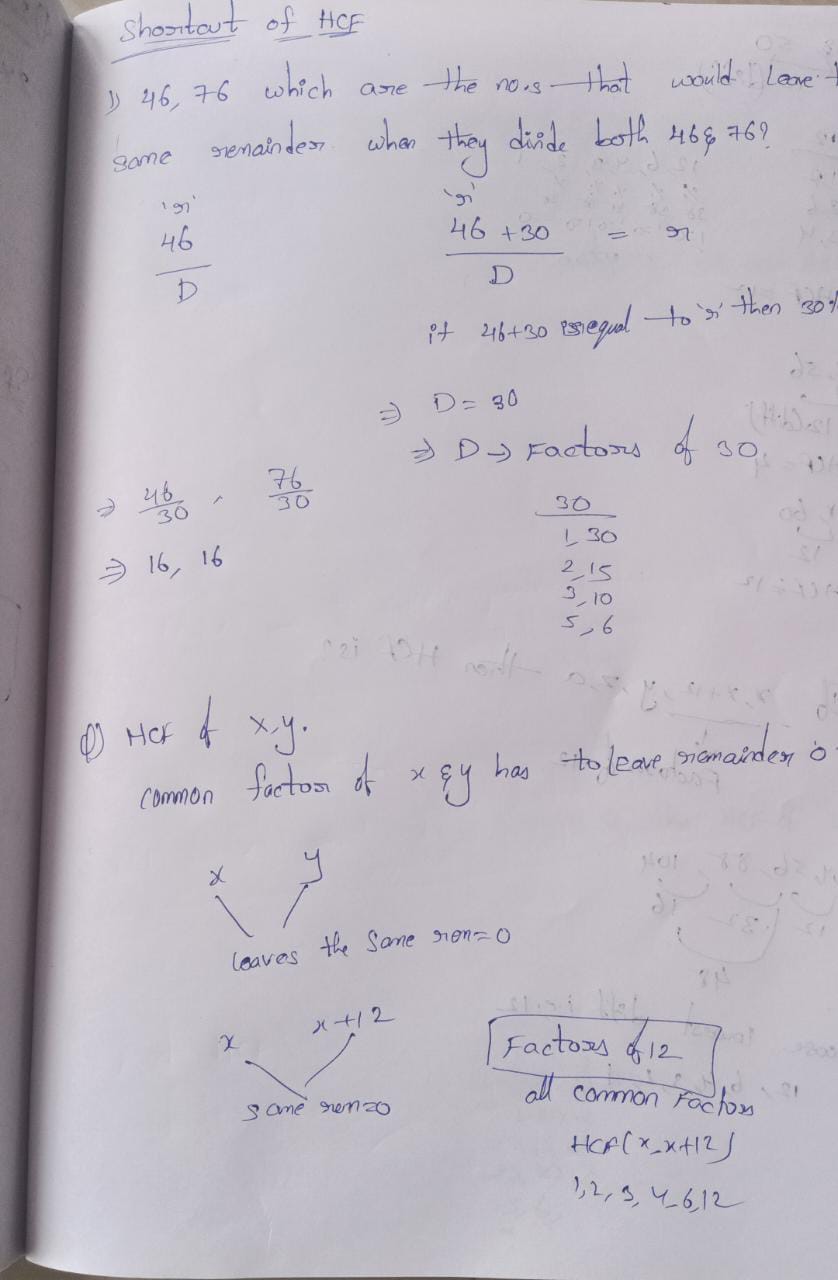 Shortcut of HCF
1) 46, 76 which are the no.s that would leave
same remainder when they divide both 46 & 76?
'r' 'r'
46/D 46 + 30/D = r
if 46+30 equal to 'r' then 30%
⇒ D = 30
⇒ D → Factors of 30
⇒ 46/30, 76/30
30
1, 30
⇒ 16, 16
2, 15
3, 10
5, 6
HCF of x, y.
common factor of x & y has to leave remainder 0
x y
leaves the same rem=0
x x+12
same rem=0
Factors of 12
all common Factors
HCF(x, x+12)
1, 2, 3, 4, 6, 12